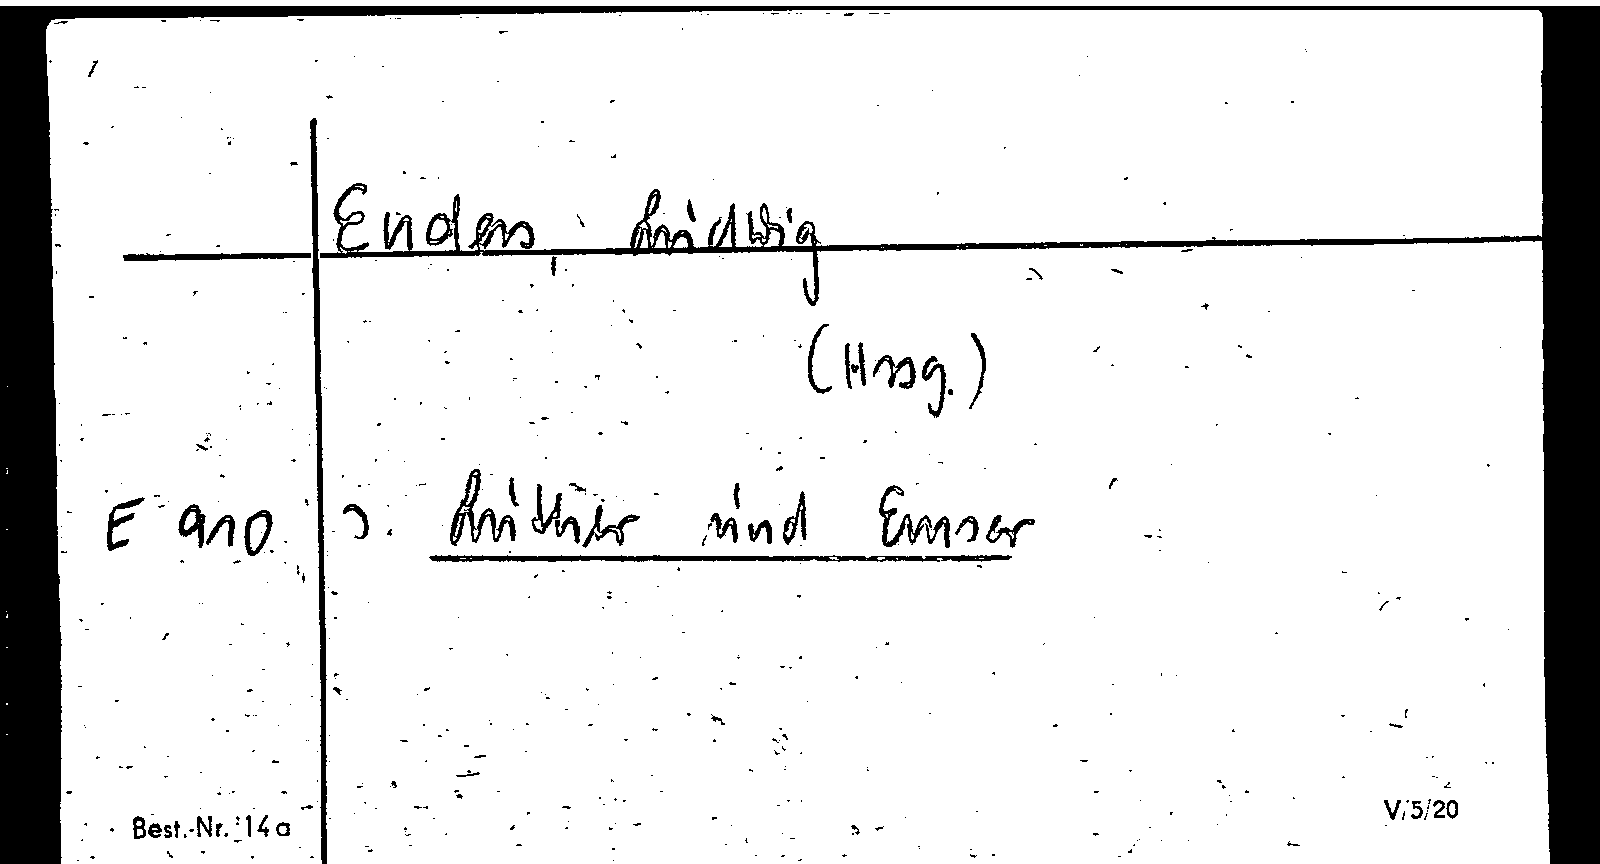 Enders, Ludwig
(Hrsg.)
E 910 s. Luther und Emser
Best.-Nr. 14a V/5/20